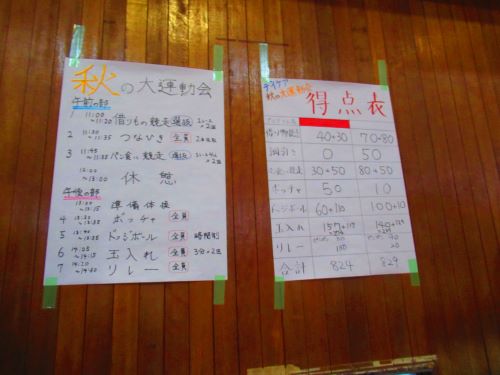 秋の大運動会
午前の部
1 11:00 ~11:20 借りもの競走 選抜
2 11:30 ~11:35 つなひき 全員 2本勝負
3 11:45 ~11:55 パン食い競走 選抜
12:00 ~13:00 休憩
午後の部
13:00 ~13:15 準備体操
4 ボッチャ 全員
5 ドッジボール 全員 時間制
6 14:05 ~14:15 玉入れ 全員 3分×2回
7 14:20 ~14:40 リレー 全員
デイケア
秋の大運動会
得点表
40+30 70+80
綱引き 0 50
30+50 80+50
ボッチャ 50 10
ドッジボール 60+110 100+100
玉入れ
リレー
合計 824 829